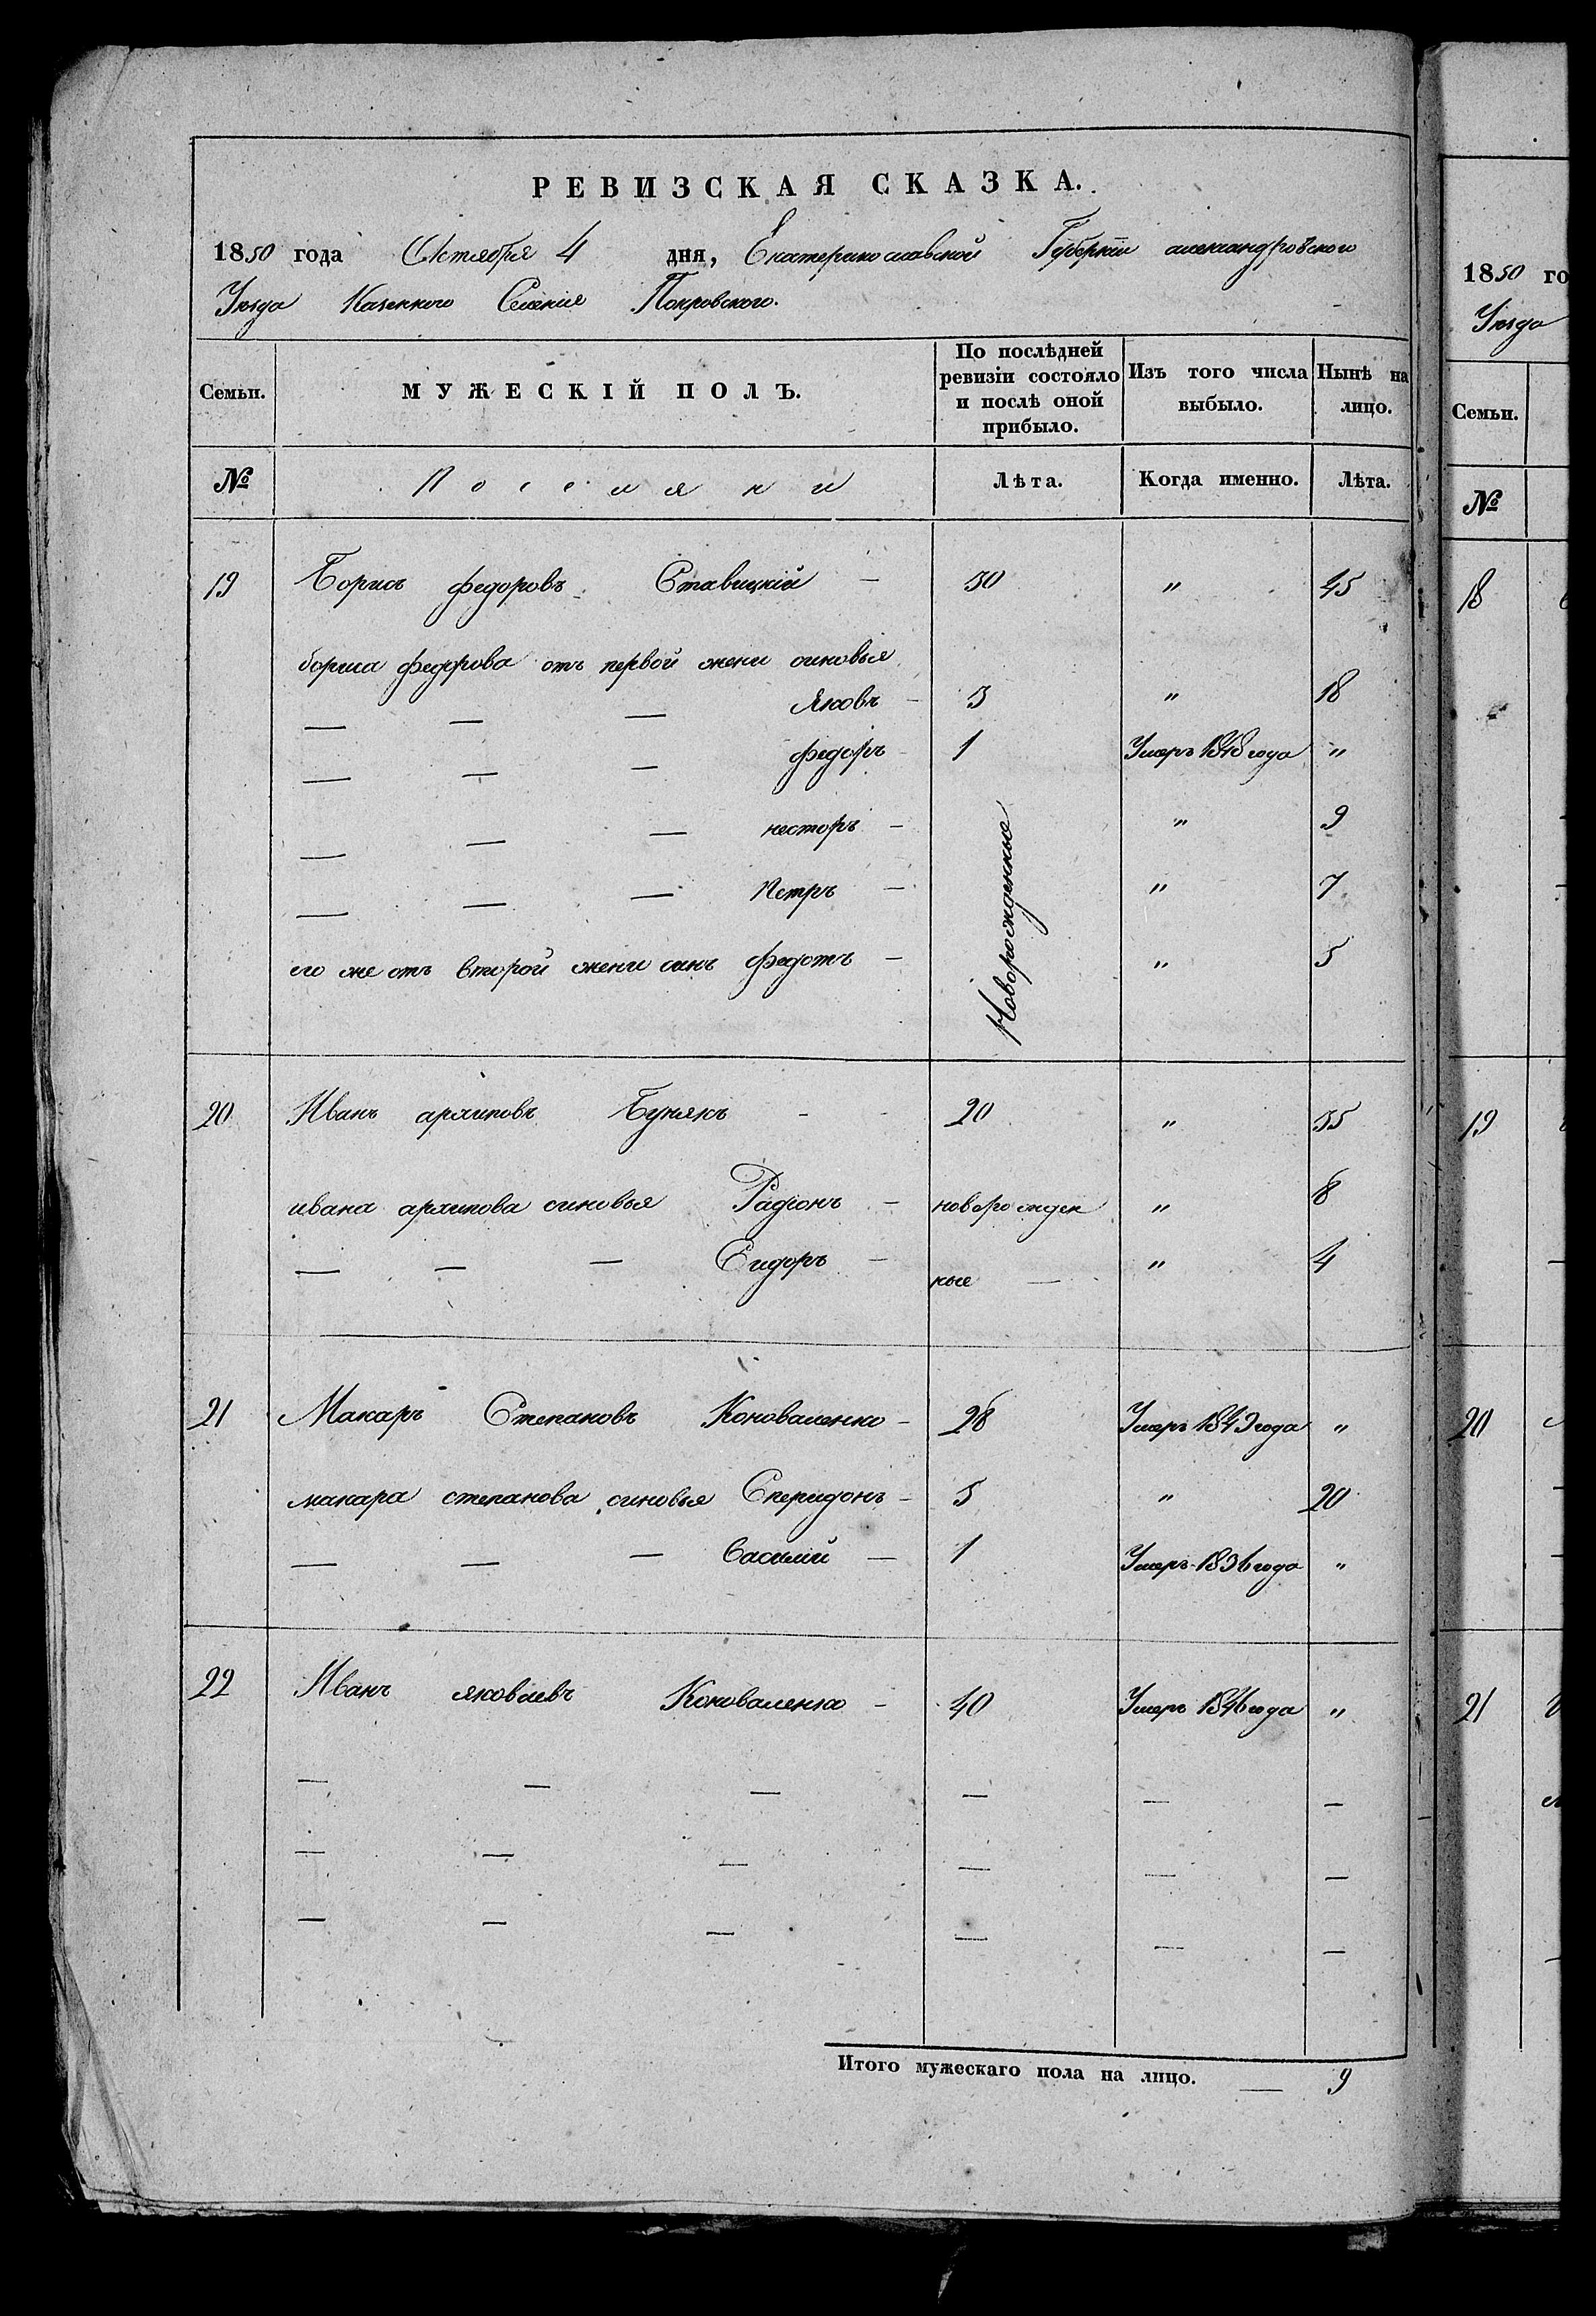 РЕВИЗСКАЯ СКАЗКА.
1850 года Октября 4 дня, Екатеринославской Губернии александровского
Уезда Казенного Селения Покровского.
Семьи. МУЖЕСКІЙ ПОЛЪ. По послѣдней ревизіи состояло и послѣ оной прибыло. Изъ того числа выбыло. Нынѣ на лицо.
№ Поселяни Лѣта. Когда именно. Лѣта.
19 Борисъ федоровъ Ставицкій — 30 " 45
бориса федорова отъ первой жени синовья
— — — Яковъ — 3 " 18
— — — федоръ — 1 Умеръ 1848 года "
— — — несторъ — Новорожденные " 9
— — — Петръ — " 7
его же отъ второй жени синъ федотъ — " 5
20 Иванъ архиповъ Бунякъ - 20 " 35
ивана архипова синовья Радіонъ — новорожден " 8
— — — Сидоръ — ные — " 4
21 Макаръ Степановъ Коноваленко — 28 Умеръ 1849 года "
макара степанова синовья Сперидонъ — 5 " 20
— — — Василий — 1 Умеръ 1836 года "
22 Иванъ яковлевъ Коноваленко — 40 Умеръ 1846 года "
— — — — — —
— — — — — —
— — — — — —
Итого мужескаго пола на лицо. — 9
1850 го
Уезда
Семьи.
№
18
19
20
21